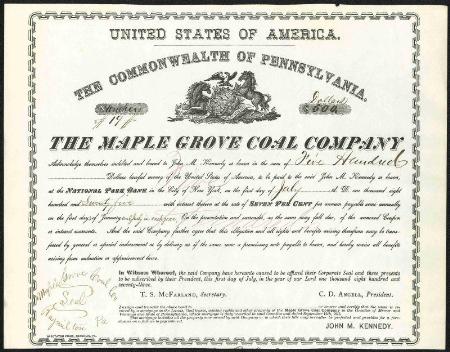 UNITED STATES OF AMERICA.
THE COMMONWEALTH OF PENNSYLVANIA.
Number
19
Dollars
$500
THE MAPLE GROVE COAL COMPANY
Acknowledge themselves indebted and bound to John M. Kennedy or bearer in the sum of Five Hundred
Dollars lawful money of the United States of America, to be paid to the said John M. Kennedy or bearer,
at the NATIONAL PARK BANK in the City of New York, on the first day of July A. D. one thousand eight
hundred and Seventy five with interest thereon at the rate of SEVEN PER CENT per annum payable semi annually
on the first days of January and July in each year On the presentation and surrender, as the same may fall due, of the annexed Coupon
or interest warrants. And the said Company further agree that this obligation and all rights and benefits arising therefrom may be trans-
ferred by general or special indorsement or by delivery as if the same were a promissory note payable to bearer, and hereby waive all benefits
arising from valuation or appraisement laws.
In Witness Whereof, the said Company have hereunto caused to be affixed their Corporate Seal and these presents
to be subscribed by their President, this first day of July, in the year of our Lord one thousand eight hundred and
seventy-three.
T. S. McFARLAND, Secretary. C. D. ANGELL, President.
JOHN M. KENNEDY.
Maple Grove Coal Co.
Seal
Pa